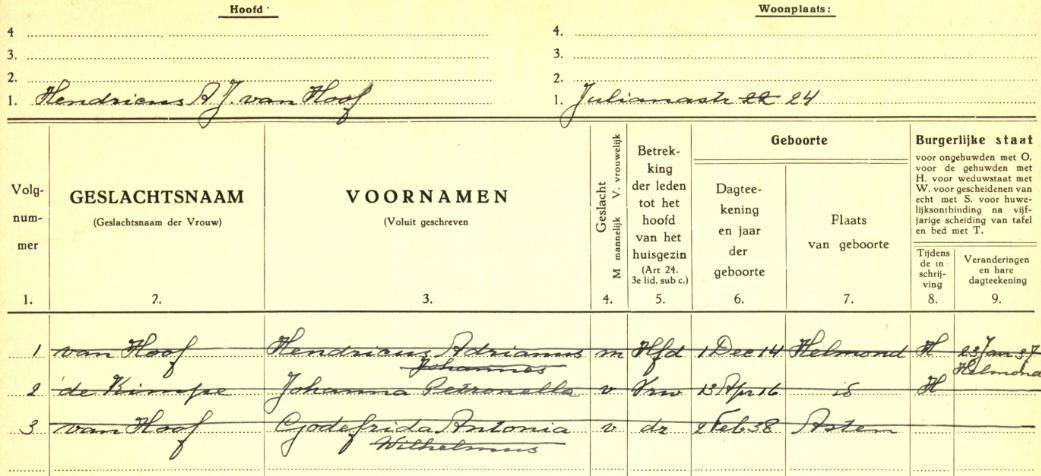 Hoofd: Woonplaats:
4 4.
3. 3.
2. 2.
1. Hendricus A J. van Hoof 1. Julianastr 22 24
Volg-
num-
mer
GESLACHTSNAAM
(Geslachtsnaam der Vrouw)
VOORNAMEN
(Voluit geschreven
Geslacht
M mannelijk V. vrouwelijk
Betrek-
king
der leden
tot het
hoofd
van het
huisgezin
(Art 24.
3e lid, sub c.)
Geboorte
Dagtee-
kening
en jaar
der
geboorte
Plaats
van geboorte
Burgerlijke staat
voor ongehuwden met O.
voor de gehuwden met
H. voor weduwstaat met
W. voor gescheidenen van
echt met S. voor huwe-
lijksontbinding na vijf-
jarige scheiding van tafel
en bed met T.
Tijdens
de in
schrij-
ving
Veranderingen
en hare
dagteekening
1. 2. 3. 4. 5. 6. 7. 8. 9.
1 van Hoof Hendricus Adrianus m Hfd 1 Dec 14 Helmond H 23 Jan 37
Johannes Helmond
2 de Kimpe Johanna Petronella v Vrw 13 Apr 16 id H
3 van Hoof Godefrida Antonia v dr 2 Feb 38 Asten
Wilhelmus